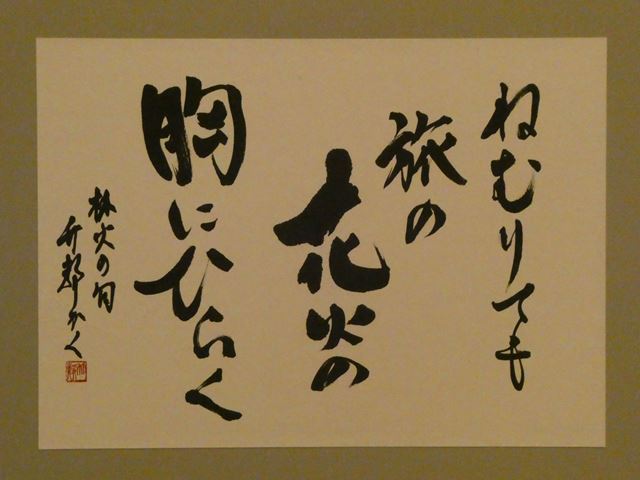 ねむりても
旅の
花火の
胸にひらく
林火の句
かく